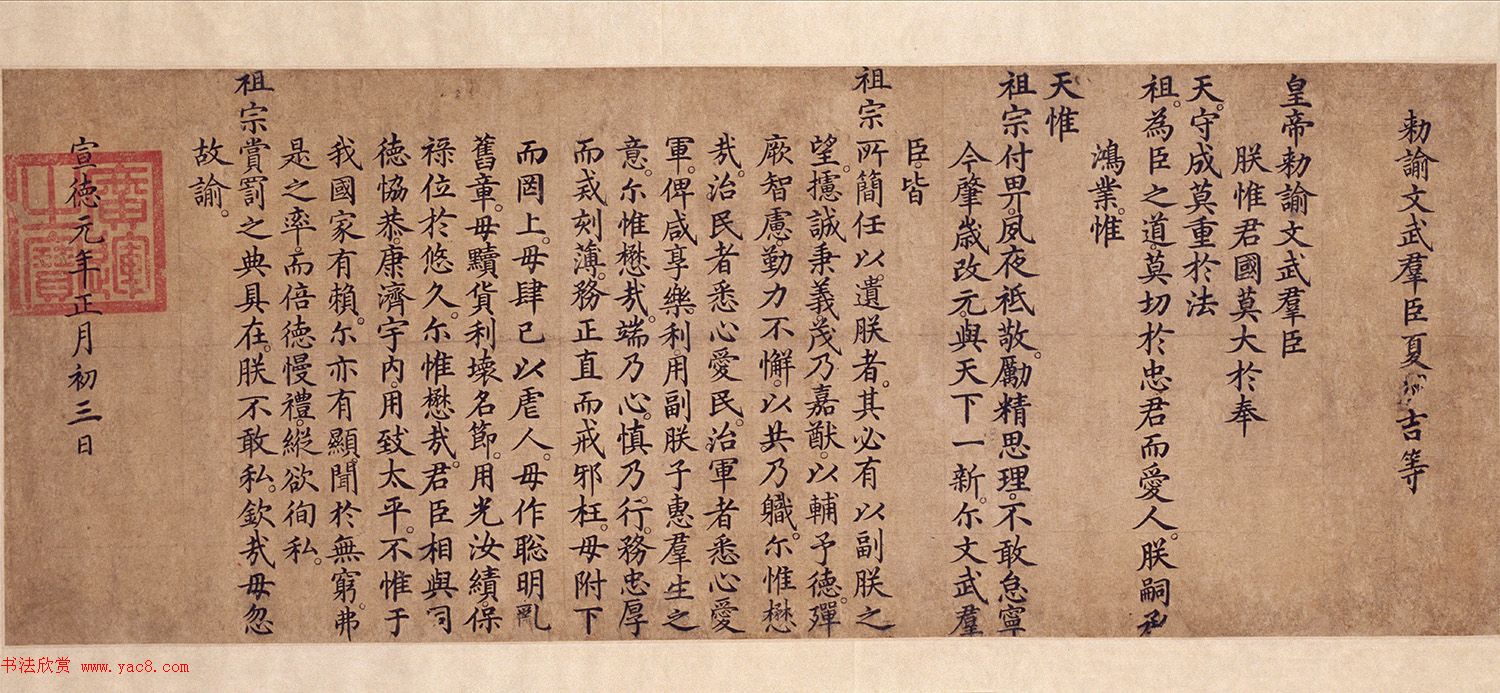 勅諭文武羣臣夏吉等
皇帝勅諭文武羣臣
朕惟君國莫大於奉
天。守成莫重於法
祖。為臣之道。莫切於忠君而愛人。朕嗣承
鴻業。惟
天惟
祖宗付畀。夙夜祗敬。勵精思理。不敢怠寧
今肇歲改元。與天下一新。尔文武羣
臣。皆
祖宗所簡任以遺朕者。其必有以副朕之
望。攄誠秉義。茂乃嘉猷。以輔予德。殫
厥智慮。勤力不懈。以共乃職。尔惟懋
哉。治民者悉心愛民。治軍者悉心愛
軍。俾咸享樂利。用副朕子惠羣生之
意。尔惟懋哉。端乃心。慎乃行。務忠厚
而戒刻薄。務正直而戒邪枉。毋附下
而罔上。毋肆己以虐人。毋作聡明亂
舊章。毋黷貨利壞名節。用光汝績。保
祿位於悠久。尔惟懋哉。君臣相與同
徳恊恭。康濟宇內。用致太平。不惟于
我國家有賴。尔亦有顯聞於無窮。弗
是之率。而倍德慢禮。縱欲徇私。
祖宗賞罰之典具在。朕不敢私。欽哉毋忽
故諭。
宣徳元年正月初三日
廣運之寶
书法欣赏 www.yac8.com